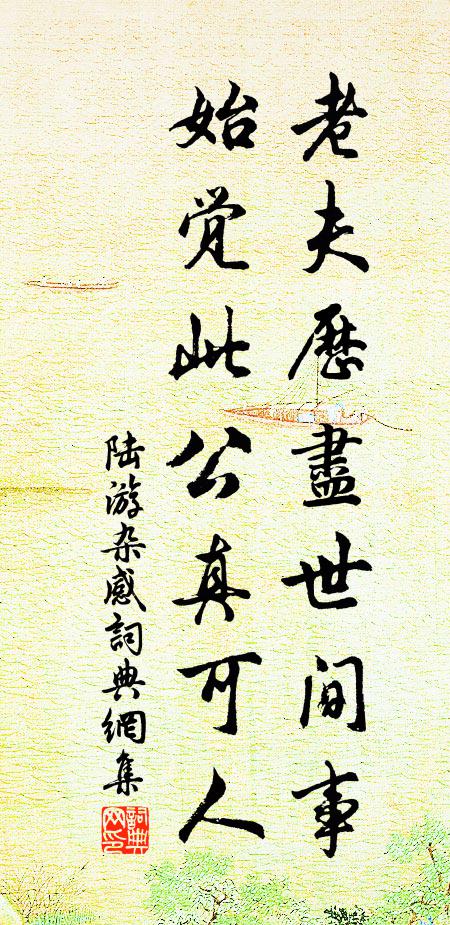 老夫歷盡世間事
始覺此公真可人
陸游杂感詞典網集
詞典网印